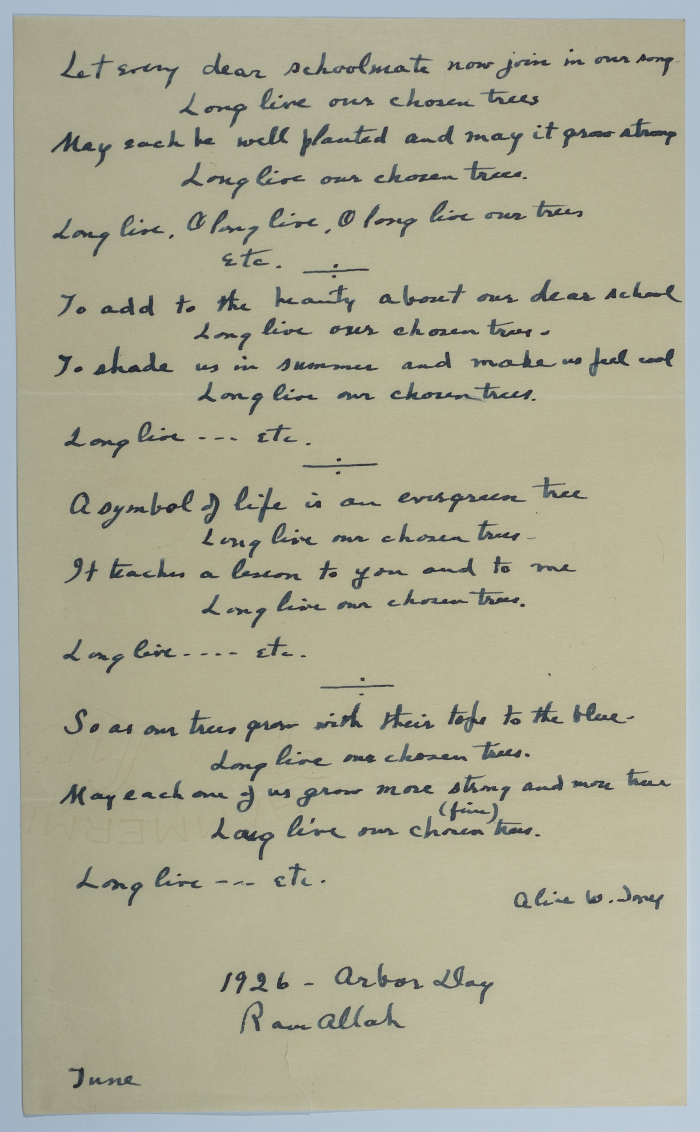 Let every dear schoolmate now join in our song
Long live our chosen trees
May each be well planted and may it grow strong
Long live our chosen trees.
Long live, O long live, O long live our trees
Etc.
To add to the beauty about our dear school
Long live our chosen trees.
To shade us in summer and make us feel cool
Long live our chosen trees.
Long live --- etc.
A symbol of life is an evergreen tree
Long live our chosen trees-
It teaches a lesson to you and to me
Long live our chosen trees.
Long live---- etc.
So as our trees grow with their tops to the blue-
Long live our chosen trees.
May each one of us grow more strong and more true
(fine)
Long live our chosen trees.
Long live --- etc.
Alice W. Jones
1926 - Arbor Day
Ram Allah
June